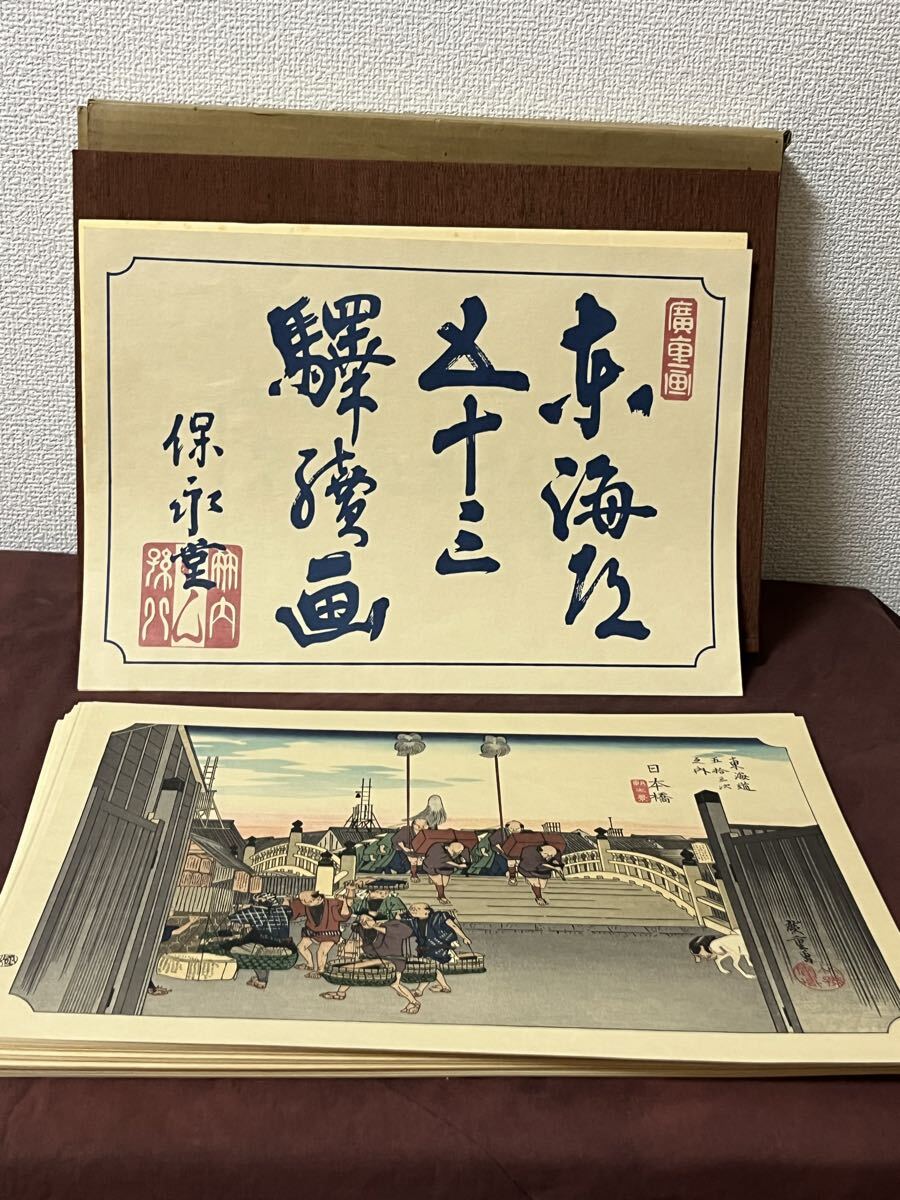 廣重画
東海道
五十三
驛續画
保永堂
東海道
五拾三次
之内
日本橋
廣重画